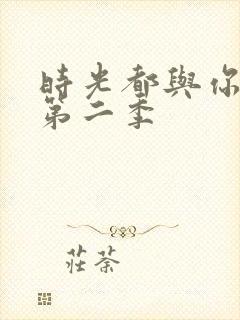 時光都與你
第二季
莊荼